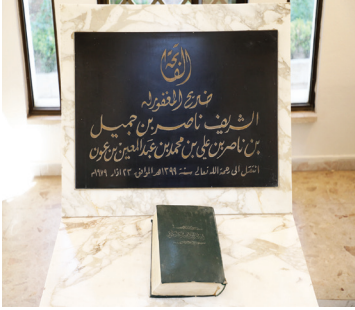 الفاتحة
ضريح المغفور له
الشريف ناصر بن جميل
بن ناصر بن علي بن محمد بن عبد المعين بن عون
انتقل الى رحمة الله تعالى سنة ١٣٩٩هـ الموافق ٢٣ اذار ١٩٧٩م